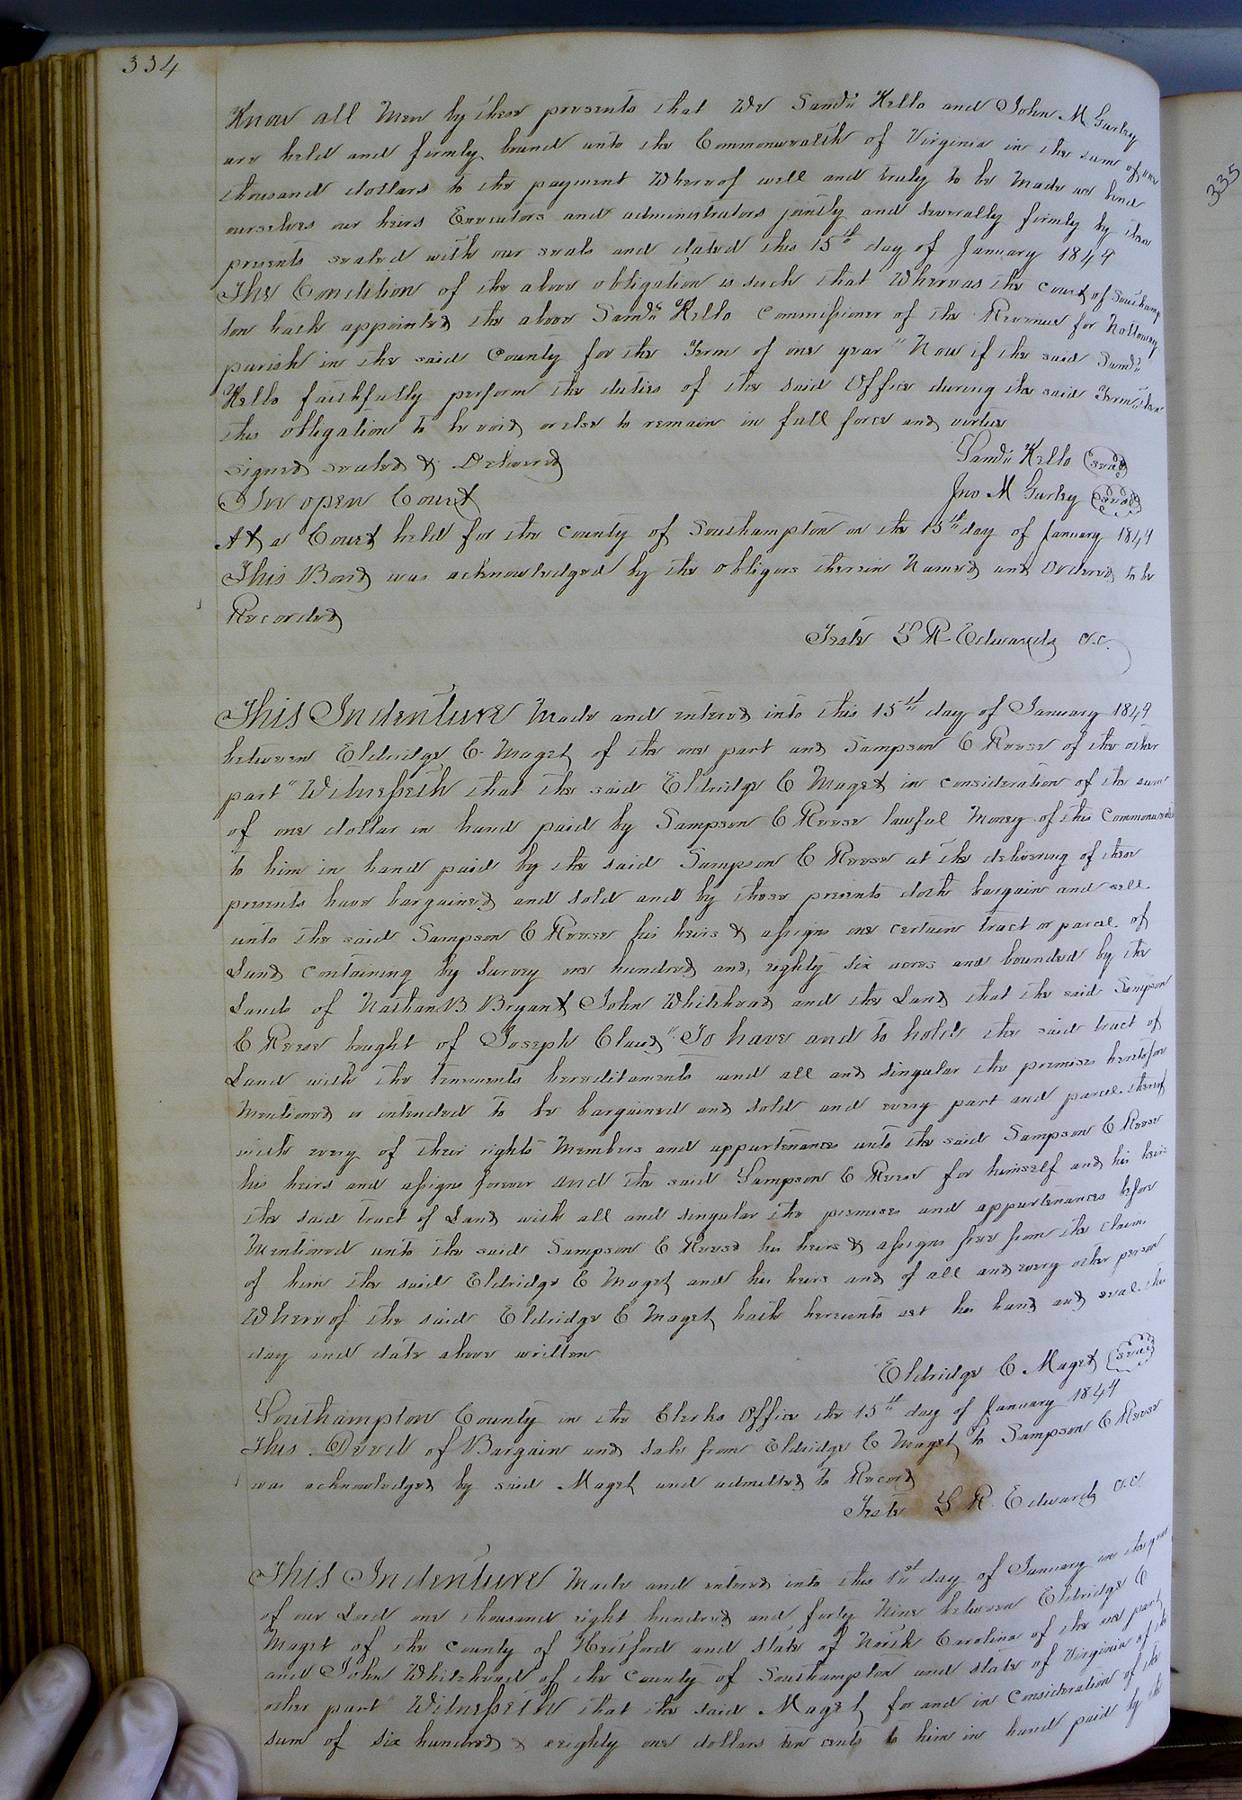 334
Know all Men by these presents that We Saml: Kello and John M Gurley
are held and firmly bound unto the Commonwealth of Virginia in the sum of one
thousand dollars to the payment Whereof well and truly to be Made we bind
ourselves our heirs Executors and administrators jointly and severally firmly by these
presents sealed with our seals and dated this 15th day of January 1849
The Condition of the above obligation is such that Whereas the court of Southamp
ton hath appointed the above Saml: Kello Commissioner of the Revenue for Nottoway
parish in the said County for the Term of one year" Now if the said Saml:
Kello faithfully perform the duties of the said Office during the said Term then
this obligation to be void or else to remain in full force and virtue
signed sealed & Delivered Saml: Kello (seal)
In open Court Jno M Gurley (seal)
At a Court held for the County of Southampton on the 15th day of January 1849
This Bond was acknowledged by the obligors therein Named and Ordered to be
Recorded
Teste L R Edwards c.c.
This Indenture Made and entered into this 15th day of January 1849
between Eldridge C Maget of the one part and Sampson C Reese of the other
part" Witnesseth that the said Eldridge C Maget in consideration of the sum
of one dollar in hand paid by Sampson C Reese lawful Money of this Commonwealth
to him in hand paid by the said Sampson C Reese at the delivering of these
presents have bargained and sold and by these presents doth bargain and sell
unto the said Sampson C Reese his heirs & assigns one certain tract or parcel of
Land containing by survey one hundred and eighty six acres and bounded by the
Lands of Nathan B Bryant John Whitehead and the Land that the said Sampson
C Reese bought of Joseph Claud" To have and to hold the said tract of
Land with the tenements hereditaments and all and singular the premises heretofore
Mentioned or intended to be bargained and sold and every part and parcel thereof
with every of their rights Members and appurtenances unto the said Sampson C Reese
his heirs and assigns forever and the said Sampson C Reese for himself and his heirs
the said tract of Land with all and singular the premises and appurtenances before
Mentioned unto the said Sampson C Reese his heirs & assigns free from the claim
of him the said Eldridge C Maget and his heirs and of all and every other person
Whereof the said Eldridge C Maget hath hereunto set his hand and seal the
day and date above written
Eldridge C Maget (seal)
Southampton County in the Clerks Office the 15th day of January 1849
This Deed of Bargain and Sale from Eldridge C Maget to Sampson C Reese
was acknowledged by said Maget and admitted to Record
Teste L R Edwards c.c.
This Indenture Made and entered into this 1st day of January in the year
of our Lord one thousand eight hundred and forty Nine between Eldridge C
Maget of the County of Hertford and State of North Carolina of the one part
and John Whitehead of the County of Southampton and State of Virginia of the
other part" Witnesseth that the said Maget for and in Consideration of the
sum of six hundred & eeighty one dollars ten cents to him in hand paid by the
335